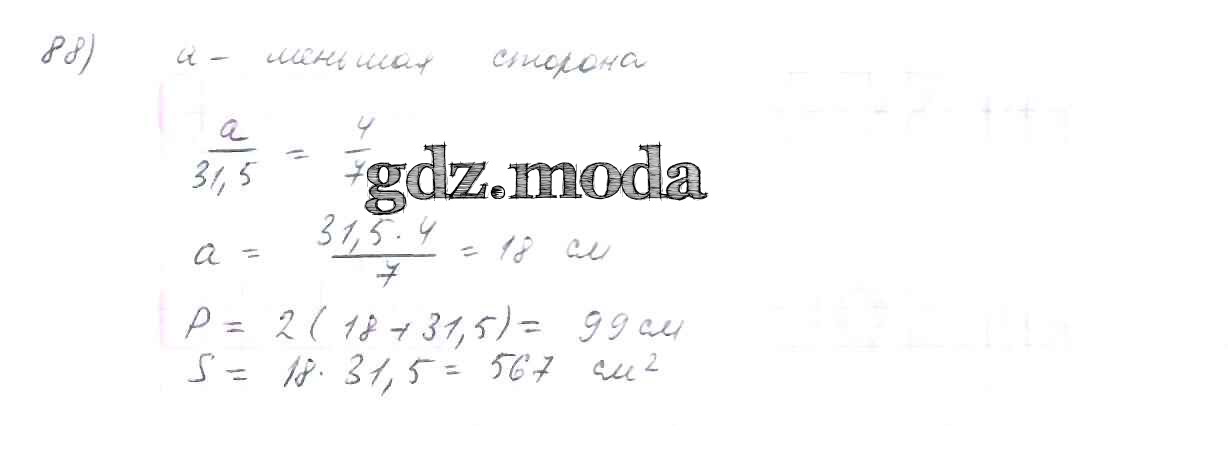 88) a - меньшая сторона
a/31,5 = 4/7
gdz.moda
a = 31,5·4/7 = 18 см
P = 2(18+31,5) = 99 см
S = 18·31,5 = 567 см²